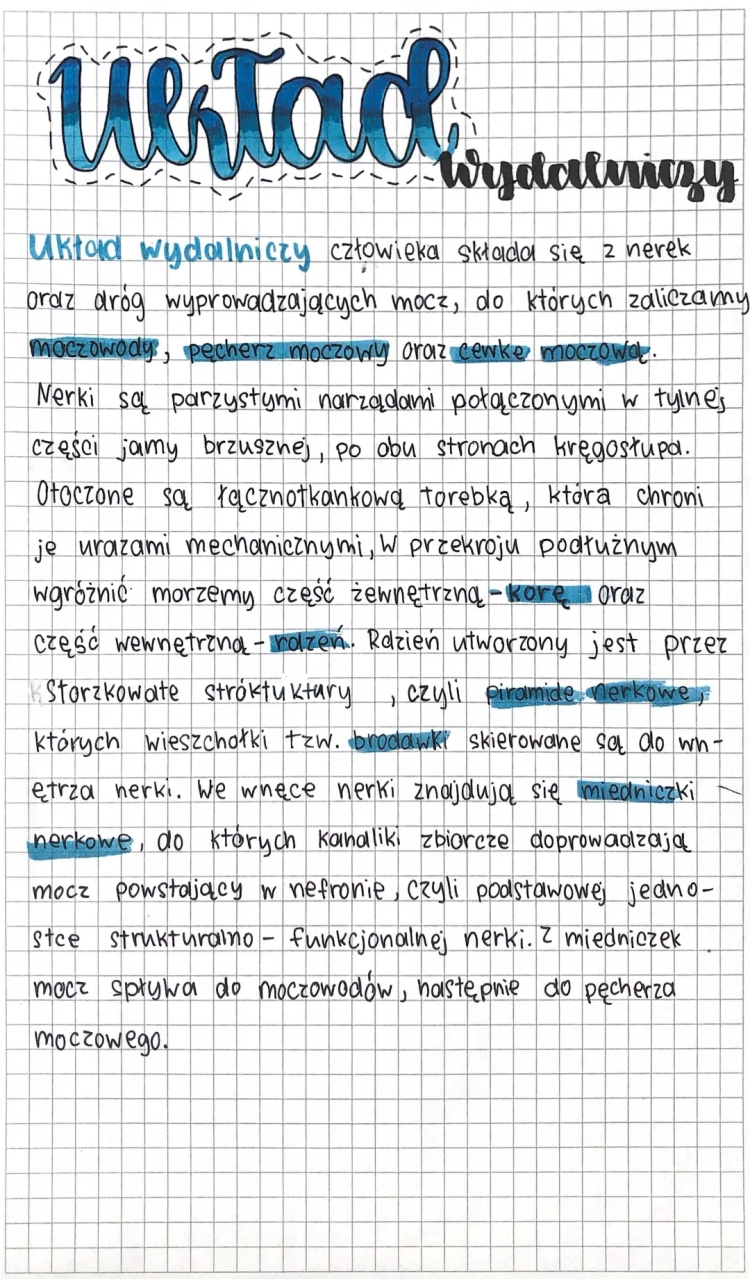 Układ
wydalniczy
Układ wydalniczy człowieka składa się z nerek
oraz dróg wyprowadzających mocz, do których zaliczamy
moczowody, pęcherz moczowy oraz cewkę moczową.
Nerki są parzystymi narządami połączonymi w tylnej
części jamy brzusznej, po obu stronach kręgosłupa.
Otoczone są łącznotkankową torebką, która chroni
je urazami mechanicznymi, W przekroju podłużnym
wgróżnić morzemy część żewnętrzną - korę oraz
część wewnętrzną - rdzeń. Rdzień utworzony jest przez
Storzkowate stróktuktury , czyli piramide nerkowe,
których wieszchołki tzw. brodawki skierowane są do wn-
ętrza nerki. We wnęce nerki znajdują się miedniczki
nerkowe, do których kanaliki zbiorcze doprowadzają
mocz powstający w nefronie, czyli podstawowej jedno-
stce strukturalno - funkcjonalnej nerki. Z miedniczek
mocz spływa do moczowodów, następnie do pęcherza
moczowego.